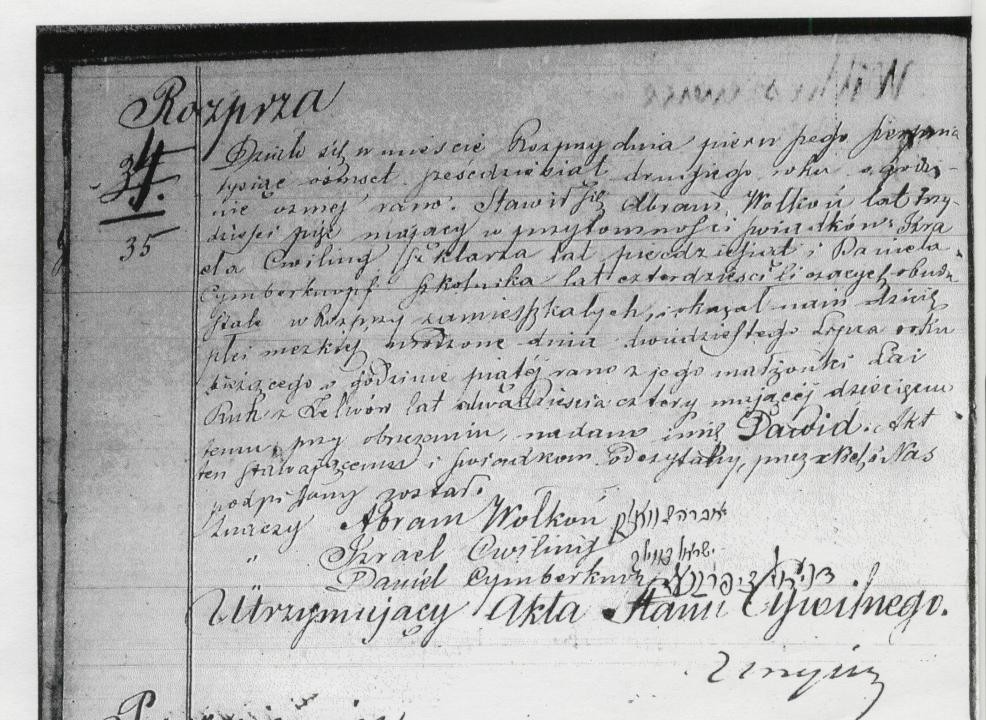 Rozprza
34.
35
Działo się w mieście Rozprzy dnia pierwszego Sierpnia
tysiąc ośmset sześćdziesiąt drugiego roku o godzi-
nie ósmej rano. Stawił się Abram Wolkoń lat trzy-
dzieści mający w przytomności świadków Izra
ela Cwiling Szklarza lat pięćdziesiąt i Daniela
Cymberknopf Szkolnika lat czterdzieści liczących, obudw
stale w Rozprzy zamieszkałych, i okazał nam dziecię
płci męzkiej urodzone dnia dwudziestego Lipca roku
bieżącego o godzinie piątéj rano z jego małżonki Łai
Ruk z lat dwadzieścia cztery mającéj dziecięciu
temu przy obrzezaniu, nadano imię Dawid. Akt
ten stawającemu i świadkom odczytany, przez Nas
podpisany został.
znaczy Abram Wolkoń אברהם
" Izrael Cwiling ישראל
Daniel Cymberknop
Utrzymujący Akta Stanu Cywilnego.